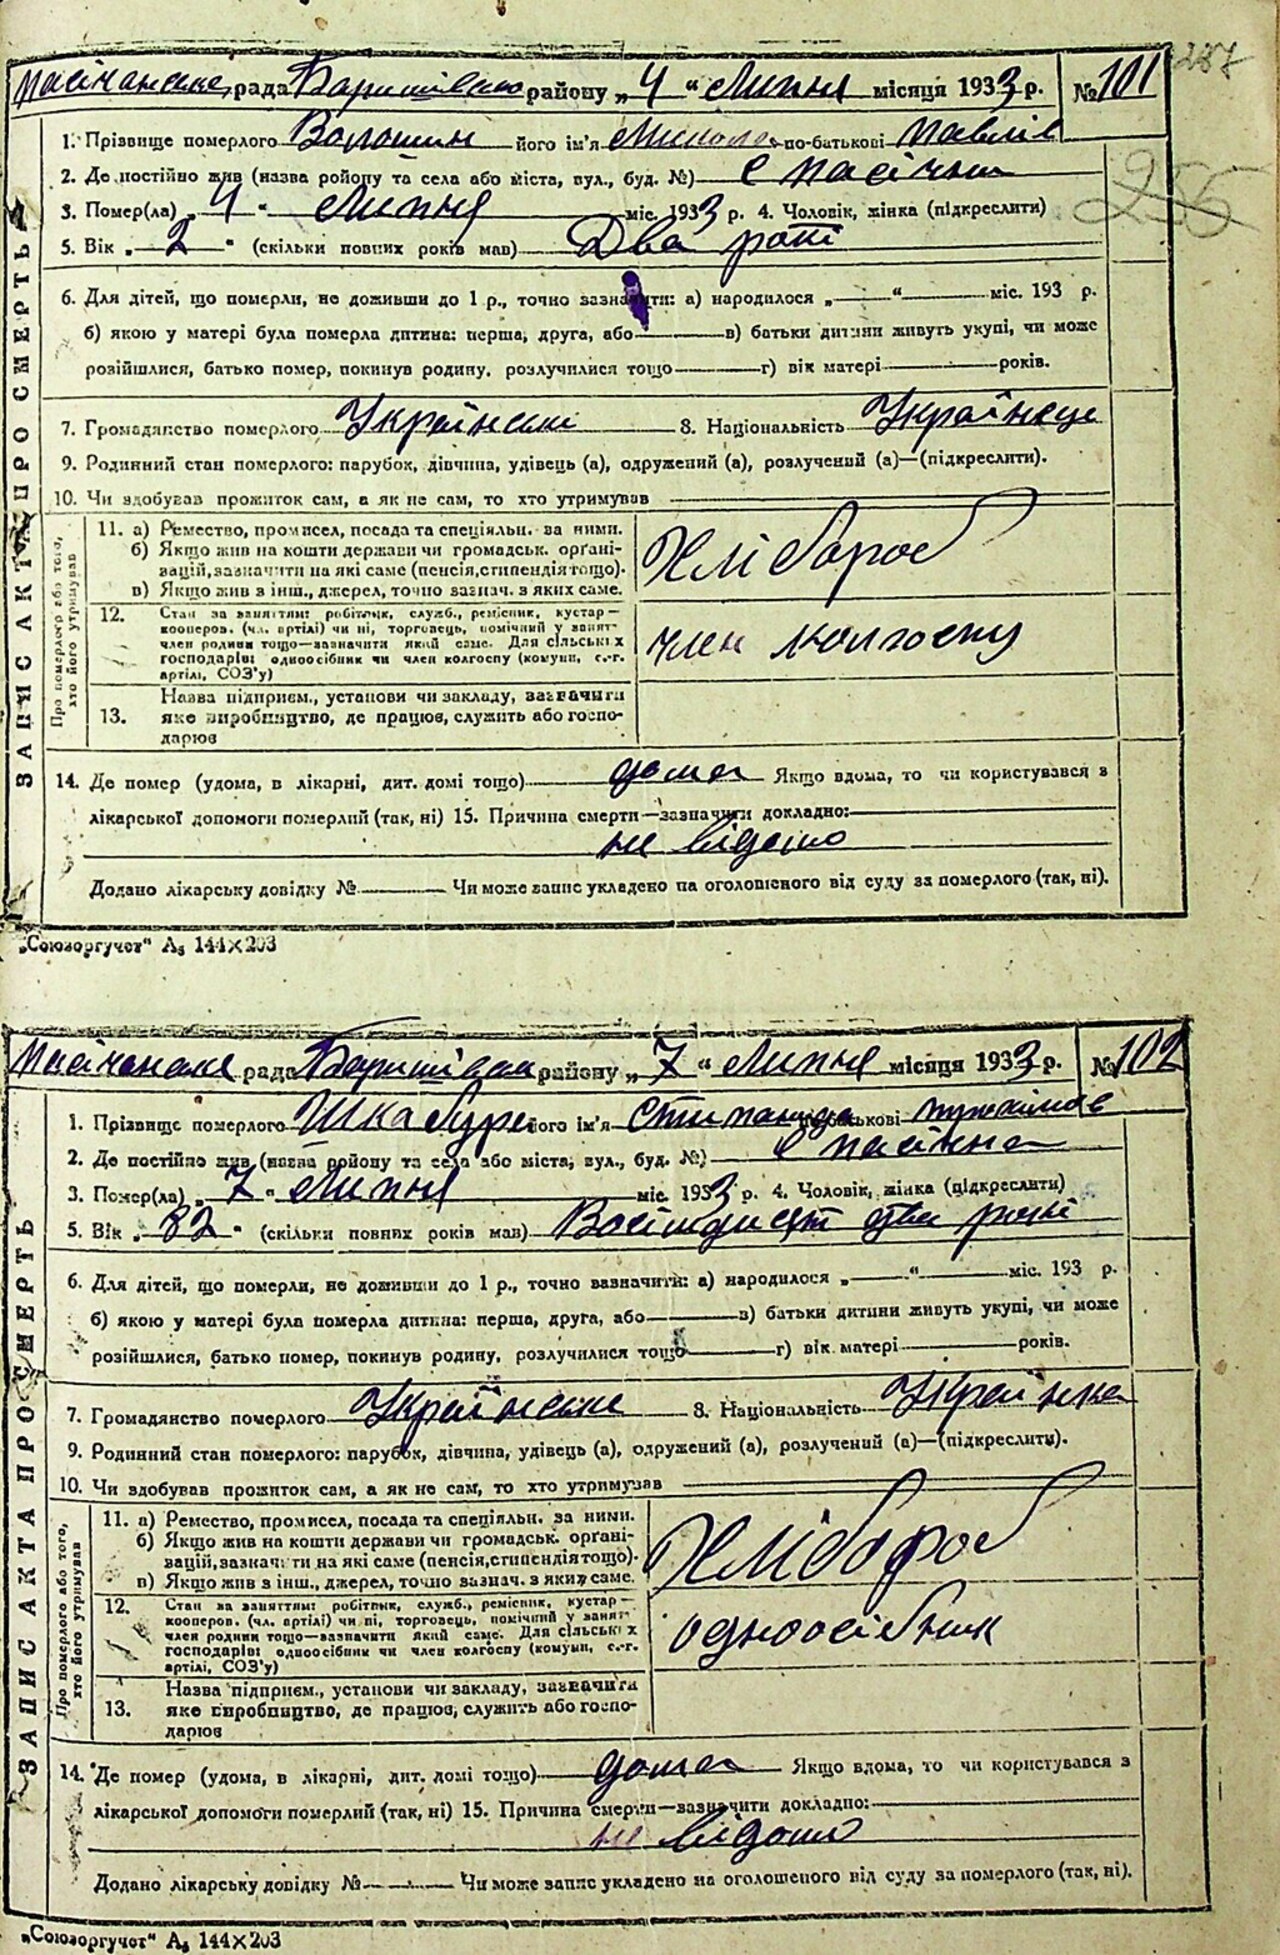 287
Пасічанське рада Баришівсько району „4“ Липня місяця 1933 р. № 101
255
1. Прізвище померлого Волошин його ім'я Микола по-батькові Павлів
2. Де постійно жив (назва ройопу та села або міста, вул., буд. №) с Пасічна
3. Помер(ла) „4“ Липня міс. 1933 р. 4. Чоловік, жінка (підкреслити)
5. Вік „2“ (скільки повних років мав) Два рокі
6. Для дітей, що померли, не доживши до 1 р., точно зазначити: а) народилося „—“ — міс. 193 р.
б) якою у матері була померла дитина: перша, друга, або — в) батьки дитини живуть укупі, чи може
розійшлися, батько помер, покинув родину, розлучилися тощо — г) вік матері — років.
7. Громадянство померлого Українське 8. Національність Українець
9. Родинний стан померлого: парубок, дівчина, удівець (а), одружений (а), розлучений (а)—(підкреслити).
10. Чи здобував прожиток сам, а як не сам, то хто утримував
ЗАПИС АКТА ПРО СМЕРТЬ
Про померлого або того, хто його утримував
11. а) Ремество, промисел, посада та спеціяльн. за ними.
б) Якщо жив на кошти держави чи громадськ. орґані-
зацій, зазначити на які саме (пенсія, стипендія тощо).
в) Якщо жив з інш., джерел, точно зазнач. з яких саме.
Хлібороб
12. Стан за заняттям: робітник, служб., ремісник, кустар—
кооперов. (чл. артілі) чи ні, торговець, помічний у занят-
член родини тощо—зазначити який саме. Для сільських
господарів: одноосібник чи член колгоспу (комуни, с.-г.
артілі, СОЗ'у)
член колгоспу
13. Назва підприєм., установи чи закладу, зазначити
яке виробництво, де працює, служить або госпо-
дарює
14. Де помер (удома, в лікарні, дит. домі тощо) дома Якщо вдома, то чи користувався з
лікарської допомоги померлий (так, ні) 15. Причина смерти—зазначити докладно:
не відомо
Додано лікарську довідку № — Чи може запис укладено на оголошеного від суду за померлого (так, ні).
„Союзоргучет“ А₅ 144×203
Пасічанське рада Баришівсько району „7“ Липня місяця 1933 р. № 102
1. Прізвище померлого Шкабуре його ім'я Степанида по-батькові
2. Де постійно жив (назва ройопу та села або міста, вул., буд. №) с Пасічна
3. Помер(ла) „7“ Липня міс. 1933 р. 4. Чоловік, жінка (підкреслити)
5. Вік „82“ (скільки повних років мав) Восімдисят два рокі
6. Для дітей, що померли, не доживши до 1 р., точно зазначити: а) народилося „—“ — міс. 193 р.
б) якою у матері була померла дитина: перша, друга, або — в) батьки дитини живуть укупі, чи може
розійшлися, батько помер, покинув родину, розлучилися тощо — г) вік матері — років.
7. Громадянство померлого Українське 8. Національність Українка
9. Родинний стан померлого: парубок, дівчина, удівець (а), одружений (а), розлучений (а)—(підкреслити).
10. Чи здобував прожиток сам, а як не сам, то хто утримував
ЗАПИС АКТА ПРО СМЕРТЬ
Про померлого або того, хто його утримував
11. а) Ремество, промисел, посада та спеціяльн. за ними.
б) Якщо жив на кошти держави чи громадськ. орґані-
зацій, зазначити на які саме (пенсія, стипендія тощо).
в) Якщо жив з інш., джерел, точно зазнач. з яких саме.
Хлібороб
12. Стан за заняттям: робітник, служб., ремісник, кустар—
кооперов. (чл. артілі) чи ні, торговець, помічний у занят-
член родини тощо—зазначити який саме. Для сільських
господарів: одноосібник чи член колгоспу (комуни, с.-г.
артілі, СОЗ'у)
одноосібник
13. Назва підприєм., установи чи закладу, зазначити
яке виробництво, де працює, служить або госпо-
дарює
14. Де помер (удома, в лікарні, дит. домі тощо) дома Якщо вдома, то чи користувався з
лікарської допомоги померлий (так, ні) 15. Причина смерти—зазначити докладно:
не відомо
Додано лікарську довідку № — Чи може запис укладено на оголошеного від суду за померлого (так, ні).
„Союзоргучет“ А₅ 144×203